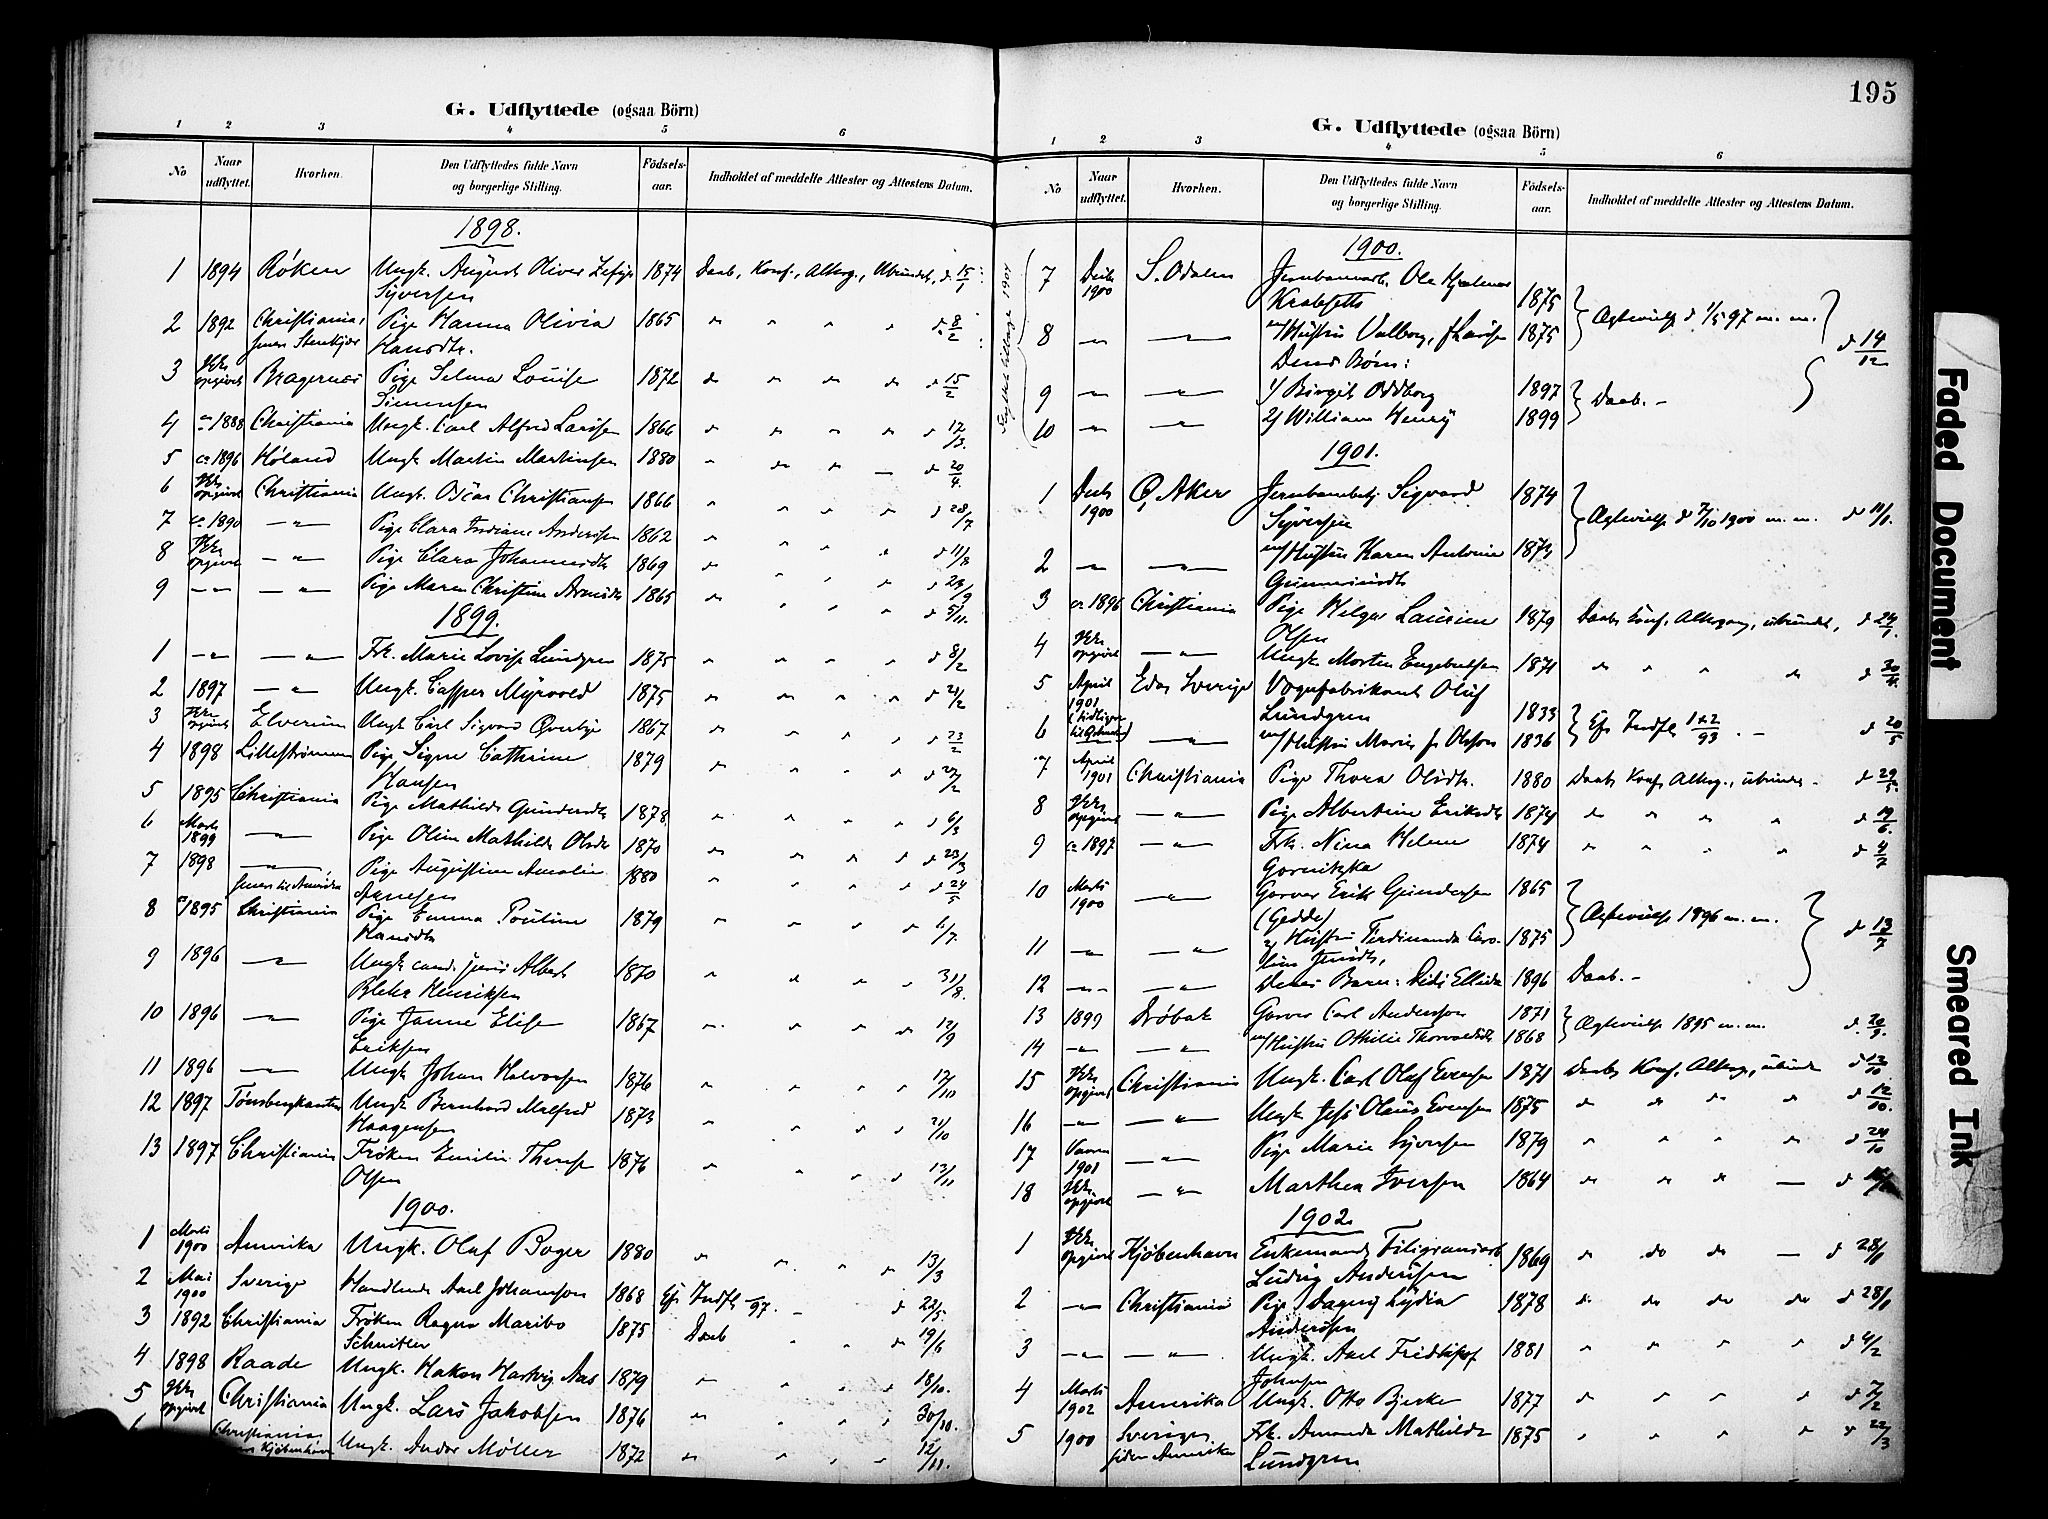 195
G. Udflyttede (ogsaa Börn)
1 2 3 4 5 6
No
Naar udflyttet.
Hvorhen.
Den Udflyttedes fulde Navn og borgerlige Stilling.
Födsels-aar.
Indholdet af meddelte Attester og Attestens Datum.
1898.
1 1894 Røken Ungk. August Oliver 1874 Daab, Konf., Alterg., Ubundet, d 15/1
Syversen
2 1892 Christiania, Pige Hanna Olivia 1865 " " " " d 8/2
Hansdtr.
3 Ikke opgivet Bragernes Pige Selma Louise 1872 " " " " d 15/2
Simensen
4 ca 1888 Christiania Ungk. Carl Alfred Larsen 1866 " " " " d 12/3.
5 ca 1896 Høland Ungk Martin Martinsen 1880 " " " — d 20/4.
6 Ikke opgivet Christiania Ungk. Oscar Christiansen 1866 " " " " d 28/7
7 ca 1890 — " — Pige Clara Indiane Andersen 1862 " " " " d 11/8
8 Ikke opgivet — " — Pige Clara Johannesdtr 1869 " " " " d 23/9
9 — " — — " — Pige Maren Christine 1865 " " " " d 5/11.
1899.
1 — " — — " — Frk. Marie Lovise Lundgren 1875 " " " " d 8/2
2 1897 — " — Ungk. Casper Myrvold 1875 " " " " d 21/2
3 Ikke opgivet Elverum Ungk Carl Sigvard Qverbye 1867 " " " " d 23/2
4 1898 Lillestrømmen Pige Signe Cathrine 1879 " " " " d 27/2
Hansen
5 1895 Christiania Pige Mathilde Gundersdtr 1878 " " " " d 6/3
6 Marts 1899 — " — Pige Oline Mathilde Olsdtr 1870 " " " " d 23/3
7 1898 — " — Pige Augustine Amalie 1880 " " " " d 24/5
senere til Amerika Arnesen
8 ca 1895 Christiania Pige Emma Pouline 1879 " " " " 6/7.
Hansdtr
9 1896 — " — Ungk cand. juris Albert 1870 " " " " 31/8.
Blehr Henriksen
10 1896 — " — Pige Janne Elise 1867 " " " " 12/9
Eriksen
11 1896 — " — Ungk Johan Halvorsen 1876 " " " " 12/10
12 1897 Tønsbergkanten Ungk Bernhard Malfred 1873 " " " " 21/10
Haagensen
13 1897 Christiania Frøken Emilie Therese 1876 " " " " 13/11
Olsen
1900.
1 Marts 1900 Amerika Ungk. Olaf Boger 1880 " " " " 13/3
2 Mai 1900 Sverige Handlende Axel Johannson 1868 Efr Indfl. /97. — d 22/5.
3 1892 Christiania Frøken Ragna Maribo 1875 Daab " " 19/6
Schnitler
4 1898 Raade Ungk. Hakon Hartvig Aas 1879 " " " " 18/10.
5 Ikke opgivet Christiania Ungk. Lars Jakobsen 1876 " " " " 30/10.
Christiania, Kjøbenhavn Ungk. Møller 1872 " " " " 12/11.
G. Udflyttede (ogsaa Börn)
1 2 3 4 5 6
No
Naar udflyttet.
Hvorhen.
Den Udflyttedes fulde Navn og borgerlige Stilling.
Födsels-aar.
Indholdet af meddelte Attester og Attestens Datum.
1900.
7 Decbr 1900 S. Odalen Jernbanearb. Ole Hjalmar 1875 Ægtevielse d 1/5 97 m. m. d 14/12
Krabseth
8 — " — — " — m/Hustru Valborg, f Larsen 1875
Deres Børn:
9 — " — — " — 1/ Birgit Oddborg 1897 Daab. —
10 — " — — " — 2/ William Henry 1899
1901.
1 Decbr 1900 Ø, Aker Jernbanebetj Sigvard 1874 Ægtevielse d 7/10 1900 m. m. d 11/1.
Syversen
2 — " — — " — m/Hustru Karen Antonie 1873
Gunnerusdtr
3 ca 1896 Christiania Pige Helga Laurine 1879 Daab, Konf, Altergang, ubundet, d 24/1.
Olsen
4 Ikke opgivet — " — Ungk Morten Engebretsen 1871 " " " " d 30/4.
5 April 1901 Eda, Sverige Vognfabrikant Oluf 1833 Efr. Indfl 1+2/93. — d 20/5
Lundgren
6 — " — m/Hustru Marie f. Olsson 1836
7 April 1901 Christiania Pige Thora Olsdtr. 1880 Daab, Konf. Alterg., ubundet — d 29/5.
8 Ikke opgivet — " — Pige Albertine Eriksdtr 1874 " " " " d 19/6.
9 ca 1897 — " — Frk. Nina Helene 1874 " " " " d 4/7
Gornitzka
10 Marts 1900 — " — Garver Erik Gundersen 1865 Ægtevielse 1896 m. m. d 13/7
(Gedde)
11 — " — — " — m/ Hustru Ferdinanda Caro- 1875
line
12 — " — — " — Deres Barn: Didi Ellida 1896 Daab. —
13 1899 Drøbak Garver Carl Anderssen 1871 Ægtevielse 1895 m. m. d. 20/9.
14 — " — — " — m/Hustru Othilie Thorvaldsdtr 1868
15 Ikke opgivet Christiania Ungk. Carl Oluf Evensen 1871 Daab, Konf, Alterg, ubundet d 12/10
16 — " — — " — Ungk Jens Olaus Evensen 1875 " " " " d 12/10.
17 Vaaren 1901 — " — Pige Marie Syversen 1879 " " " " d 24/10
18 Ikke opgivet — " — Marthea Iversen 1864 " " " — d
1902.
1 Ikke opgivet Kjøbenhavn Enkemand Filigransarb 1869 " do do — d 28/1
Ludvig Anderssen
2 — " — Christiania Pige Dagny Lydia 1878 " " " " d 28/1
Anderssen
3 — " — — " — Ungk. Axel Fridtjof 1881 " " " " d 4/2
Johnsen
4 Marts 1902 Amerika Ungk. Otto Bjerke 1877 " " " " d 7/2
5 1900 Sverige, Frk. Amanda Mathilde 1875 " " " " d 22/3
siden Amerika Lundgren
Faded Document
Smeared Ink